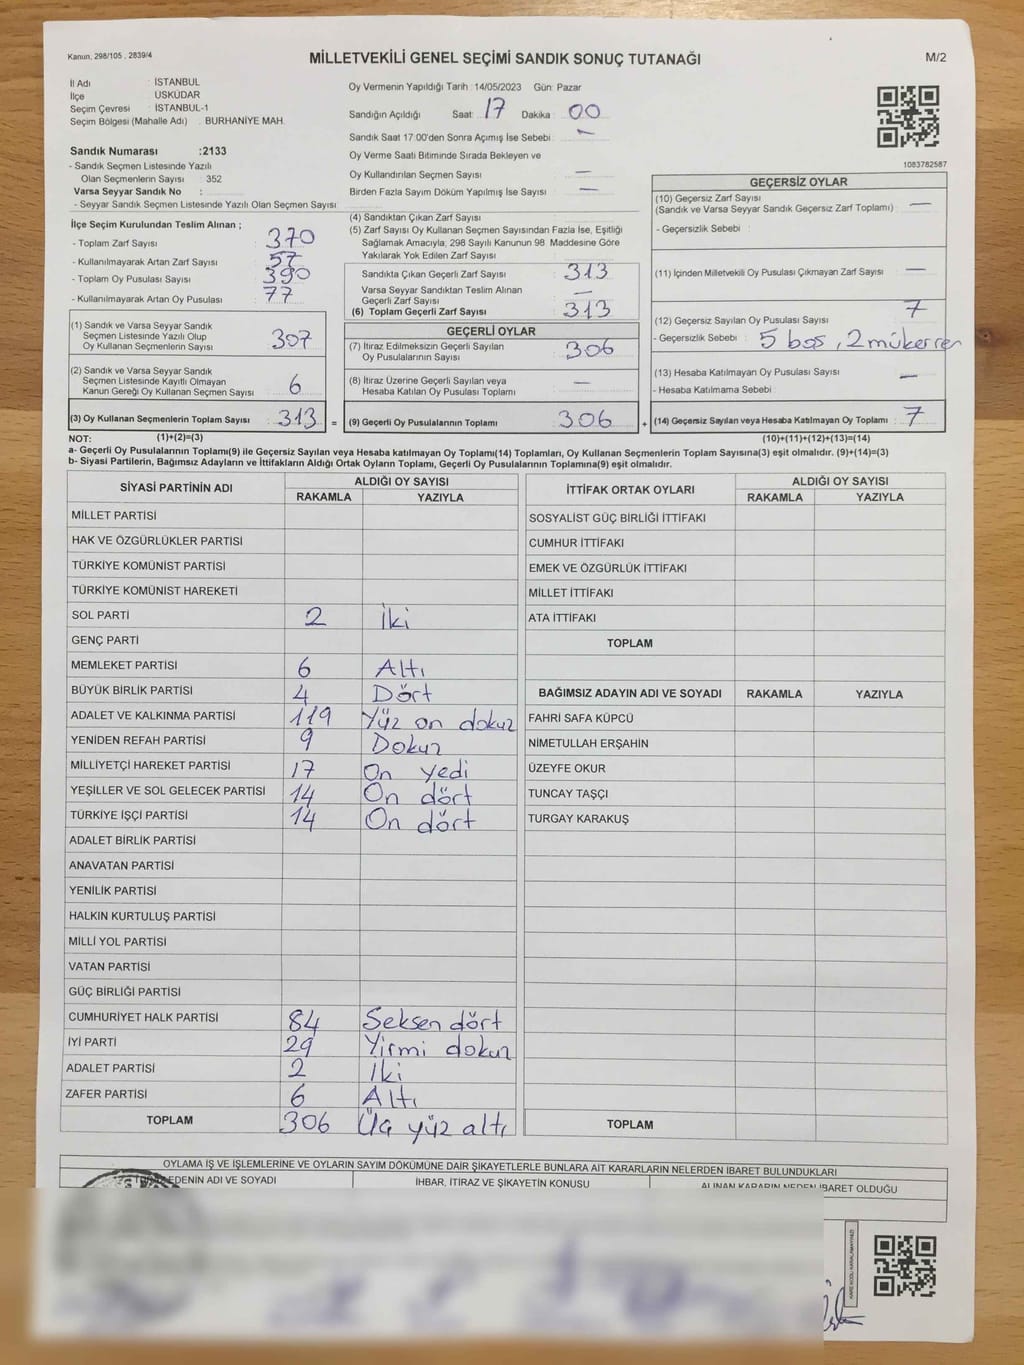 Kanun, 298/105 , 2839/4
MİLLETVEKİLİ GENEL SEÇİMİ SANDIK SONUÇ TUTANAĞI
M/2
İl Adı : İSTANBUL
İlçe : ÜSKÜDAR
Seçim Çevresi : İSTANBUL-1
Seçim Bölgesi (Mahalle Adı) : BURHANİYE MAH.
Sandık Numarası :2133
- Sandık Seçmen Listesinde Yazılı
Olan Seçmenlerin Sayısı : 352
Varsa Seyyar Sandık No :
- Seyyar Sandık Seçmen Listesinde Yazılı Olan Seçmen Sayısı :
İlçe Seçim Kurulundan Teslim Alınan ;
- Toplam Zarf Sayısı : 370
- Kullanılmayarak Artan Zarf Sayısı : 57
- Toplam Oy Pusulası Sayısı : 390
- Kullanılmayarak Artan Oy Pusulası : 77
(1) Sandık ve Varsa Seyyar Sandık
Seçmen Listesinde Yazılı Olup
Oy Kullanan Seçmenlerin Sayısı : 307
(2) Sandık ve Varsa Seyyar Sandık
Seçmen Listesinde Kayıtlı Olmayan
Kanun Gereği Oy Kullanan Seçmen Sayısı : 6
(3) Oy Kullanan Seçmenlerin Toplam Sayısı : 313 =
Oy Vermenin Yapıldığı Tarih : 14/05/2023 Gün: Pazar
Sandığın Açıldığı Saat: 17 Dakika : 00
Sandık Saat 17.00'den Sonra Açımış İse Sebebi : -
Oy Verme Saati Bitiminde Sırada Bekleyen ve
Oy Kullandırılan Seçmen Sayısı : -
Birden Fazla Sayım Döküm Yapılmış İse Sayısı : -
(4) Sandıktan Çıkan Zarf Sayısı :
(5) Zarf Sayısı Oy Kullanan Seçmen Sayısından Fazla İse, Eşitliği
Sağlamak Amacıyla, 298 Sayılı Kanunun 98. Maddesine Göre
Yakılarak Yok Edilen Zarf Sayısı :
Sandıkta Çıkan Geçerli Zarf Sayısı : 313
Varsa Seyyar Sandıktan Teslim Alınan
Geçerli Zarf Sayısı : -
(6) Toplam Geçerli Zarf Sayısı : 313
GEÇERLİ OYLAR
(7) İtiraz Edilmeksizin Geçerli Sayılan
Oy Pusulalarının Sayısı : 306
(8) İtiraz Üzerine Geçerli Sayılan veya
Hesaba Katılan Oy Pusulası Toplamı : -
(9) Geçerli Oy Pusulalarının Toplamı : 306 +
1083782587
GEÇERSİZ OYLAR
(10) Geçersiz Zarf Sayısı
(Sandık ve Varsa Seyyar Sandık Geçersiz Zarf Toplamı) : -
- Geçersizlik Sebebi :
(11) İçinden Milletvekili Oy Pusulası Çıkmayan Zarf Sayısı : -
(12) Geçersiz Sayılan Oy Pusulası Sayısı : 7
- Geçersizlik Sebebi : 5 boş, 2 mükerrer
(13) Hesaba Katılmayan Oy Pusulası Sayısı : -
- Hesaba Katılmama Sebebi :
(14) Geçersiz Sayılan veya Hesaba Katılmayan Oy Toplamı : 7
NOT: (1)+(2)=(3) (10)+(11)+(12)+(13)=(14)
a- Geçerli Oy Pusulalarının Toplamı(9) ile Geçersiz Sayılan veya Hesaba katılmayan Oy Toplamı(14) Toplamları, Oy Kullanan Seçmenlerin Toplam Sayısına(3) eşit olmalıdır. (9)+(14)=(3)
b- Siyasi Partilerin, Bağımsız Adayların ve İttifakların Aldığı Ortak Oyların Toplamı, Geçerli Oy Pusulalarının Toplamına(9) eşit olmalıdır.
SİYASİ PARTİNİN ADI ALDIĞI OY SAYISI
RAKAMLA YAZIYLA
MİLLET PARTİSİ
HAK VE ÖZGÜRLÜKLER PARTİSİ
TÜRKİYE KOMÜNİST PARTİSİ
TÜRKİYE KOMÜNİST HAREKETİ
SOL PARTİ 2 İki
GENÇ PARTİ
MEMLEKET PARTİSİ 6 Altı
BÜYÜK BİRLİK PARTİSİ 4 Dört
ADALET VE KALKINMA PARTİSİ 119 Yüz on dokuz
YENİDEN REFAH PARTİSİ 9 Dokuz
MİLLİYETÇİ HAREKET PARTİSİ 17 On yedi
YEŞİLLER VE SOL GELECEK PARTİSİ 14 On dört
TÜRKİYE İŞÇİ PARTİSİ 14 On dört
ADALET BİRLİK PARTİSİ
ANAVATAN PARTİSİ
YENİLİK PARTİSİ
HALKIN KURTULUŞ PARTİSİ
MİLLİ YOL PARTİSİ
VATAN PARTİSİ
GÜÇ BİRLİĞİ PARTİSİ
CUMHURİYET HALK PARTİSİ 84 Seksen dört
İYİ PARTİ 29 Yirmi dokuz
ADALET PARTİSİ 2 İki
ZAFER PARTİSİ 6 Altı
TOPLAM 306 Üç yüz altı
İTTİFAK ORTAK OYLARI ALDIĞI OY SAYISI
RAKAMLA YAZIYLA
SOSYALİST GÜÇ BİRLİĞİ İTTİFAKI
CUMHUR İTTİFAKI
EMEK VE ÖZGÜRLÜK İTTİFAKI
MİLLET İTTİFAKI
ATA İTTİFAKI
TOPLAM
BAĞIMSIZ ADAYIN ADI VE SOYADI RAKAMLA YAZIYLA
FAHRİ SAFA KÜPCÜ
NİMETULLAH ERŞAHİN
ÜZEYFE OKUR
TUNCAY TAŞÇI
TURGAY KARAKUŞ
TOPLAM
OYLAMA İŞ VE İŞLEMLERİNE VE OYLARIN SAYIM DÖKÜMÜNE DAİR ŞİKAYETLERLE BUNLARA AİT KARARLARIN NELERDEN İBARET BULUNDUKLARI
EDENİN ADI VE SOYADI İHBAR, İTİRAZ VE ŞİKAYETİN KONUSU ALINAN KARARIN NEDEN İBARET OLDUĞU